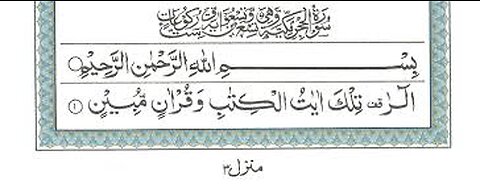 سُوْرَةُ الْحِجْرِ مَكِّيَّةٌ وَّهِيَ تِسْعٌ وَّتِسْعُوْنَ اٰيَةً وَّسِتُّ رُكُوْعَاتٍ
بِسْمِ اللّٰهِ الرَّحْمٰنِ الرَّحِيْمِ
الٓرٰ تِلْكَ اٰيٰتُ الْكِتٰبِ وَقُرْاٰنٍ مُّبِيْنٍ ۝۱
منزل ۳